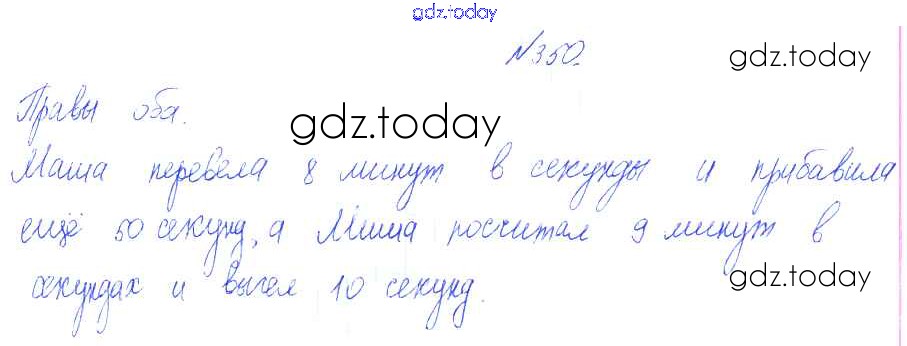 gdz.today
№350.
gdz.today
Правы оба.
gdz.today
Маша перевела 8 минут в секунды и прибавила
ещё 50 секунд, а Миша посчитал 9 минут в
секундах и вычел 10 секунд.
gdz.today